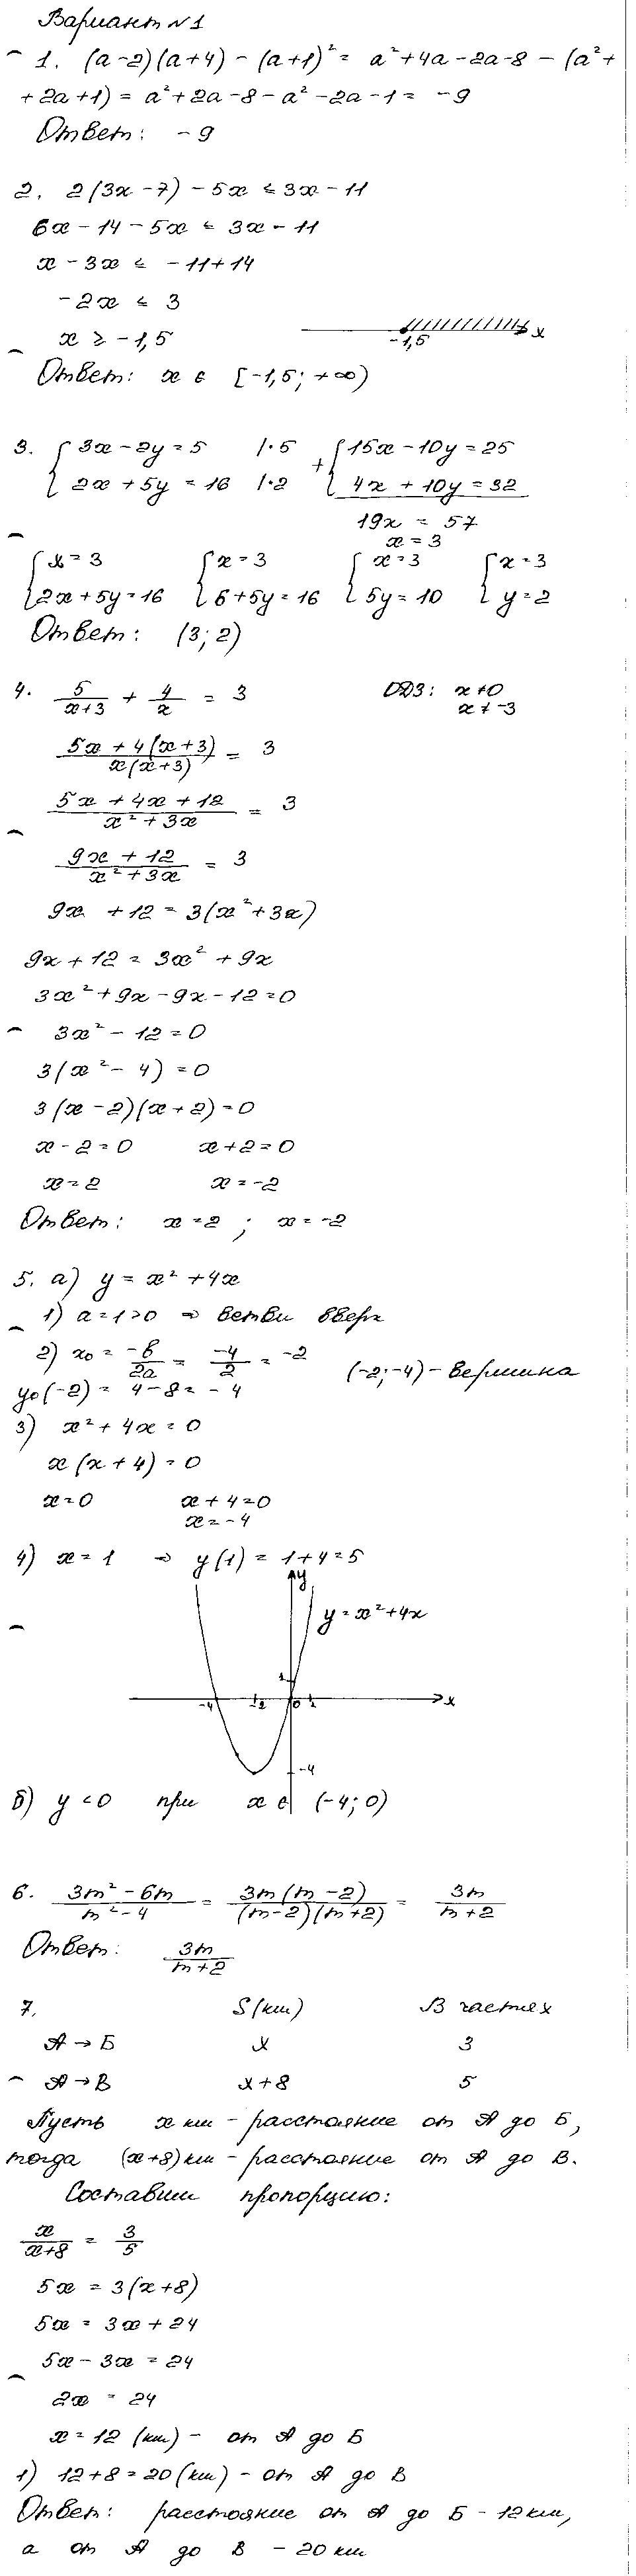 Вариант №1
1. (a-2)(a+4) - (a+1)² = a²+4a-2a-8 - (a²+
+2a+1) = a²+2a-8-a²-2a-1 = -9
Ответ: -9
2. 2(3x-7) - 5x ≤ 3x-11
6x-14-5x ≤ 3x-11
x-3x ≤ -11+14
-2x ≤ 3
x ≥ -1,5
-1,5 x
Ответ: x ∈ [-1,5; +∞)
3. { 3x-2y=5 |·5 + { 15x-10y=25
{ 2x+5y=16 |·2 { 4x+10y=32
19x = 57
x = 3
{ x=3 { x=3 { x=3 { x=3
{ 2x+5y=16 { 6+5y=16 { 5y=10 { y=2
Ответ: (3; 2)
4. 5/(x+3) + 4/x = 3 ОДЗ: x≠0
x≠-3
(5x+4(x+3))/(x(x+3)) = 3
(5x+4x+12)/(x²+3x) = 3
(9x+12)/(x²+3x) = 3
9x+12 = 3(x²+3x)
9x+12 = 3x²+9x
3x²+9x-9x-12=0
3x²-12=0
3(x²-4)=0
3(x-2)(x+2)=0
x-2=0 x+2=0
x=2 x=-2
Ответ: x=2; x=-2
5. а) y = x²+4x
1) a=1>0 ⇒ ветви вверх
2) x₀ = -b/2a = -4/2 = -2 (-2;-4) - вершина
y₀(-2) = 4-8 = -4
3) x²+4x=0
x(x+4)=0
x=0 x+4=0
x=-4
4) x=1 ⇒ y(1) = 1+4=5
y
y=x²+4x
1
-4 -2 0 1 x
-4
б) y<0 при x ∈ (-4; 0)
6. (3m²-6m)/(m²-4) = 3m(m-2)/((m-2)(m+2)) = 3m/(m+2)
Ответ: 3m/(m+2)
7. S(км) В частях
А → Б x 3
А → В x+8 5
Пусть x км - расстояние от А до Б,
тогда (x+8) км - расстояние от А до В.
Составим пропорцию:
x/(x+8) = 3/5
5x = 3(x+8)
5x = 3x+24
5x-3x = 24
2x = 24
x = 12 (км) - от А до Б
1) 12+8=20 (км) - от А до В
Ответ: расстояние от А до Б - 12 км,
а от А до В - 20 км